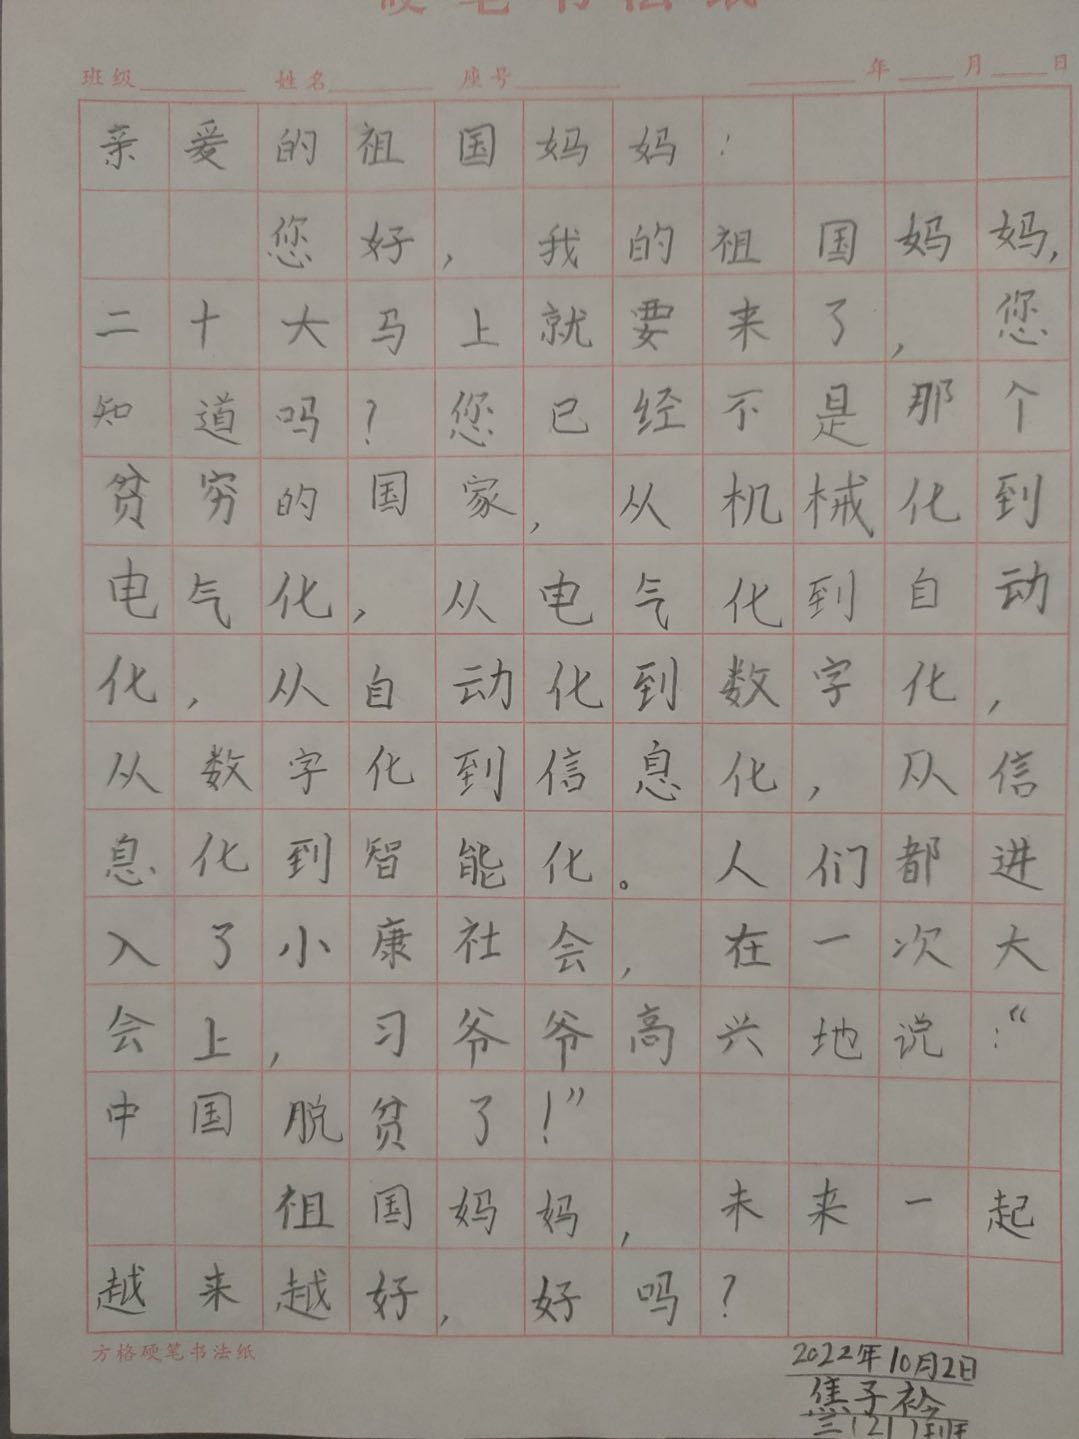 硬笔书法纸
班级 姓名 座号 年 月 日
亲爱的祖国妈妈：
您好，我的祖国妈妈，
二十大马上就要来了，您
知道吗？您已经不是那个
贫穷的国家，从机械化到
电气化，从电气化到自动
化，从自动化到数字化，
从数字化到信息化，从信
息化到智能化。人们都进
入了小康社会，在一次大
会上，习爷爷高兴地说：“
中国脱贫了！”
祖国妈妈，未来一起
越来越好，好吗？
方格硬笔书法纸
2022年10月2日
焦子衿
三（2）班